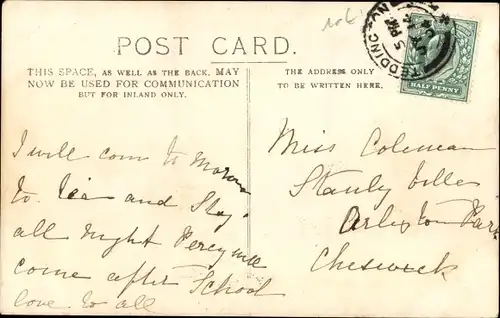 POST CARD.
THIS SPACE, AS WELL AS THE BACK, MAY
NOW BE USED FOR COMMUNICATION
BUT FOR INLAND ONLY.
THE ADDRESS ONLY
TO BE WRITTEN HERE.
TEDDING
5 PM
HALF PENNY
I will com to Morow
to Tea and Stay
all night Percy will
come after School
love to all
Miss Coleman
Stanly Villa
Arlington Park
Cheswick